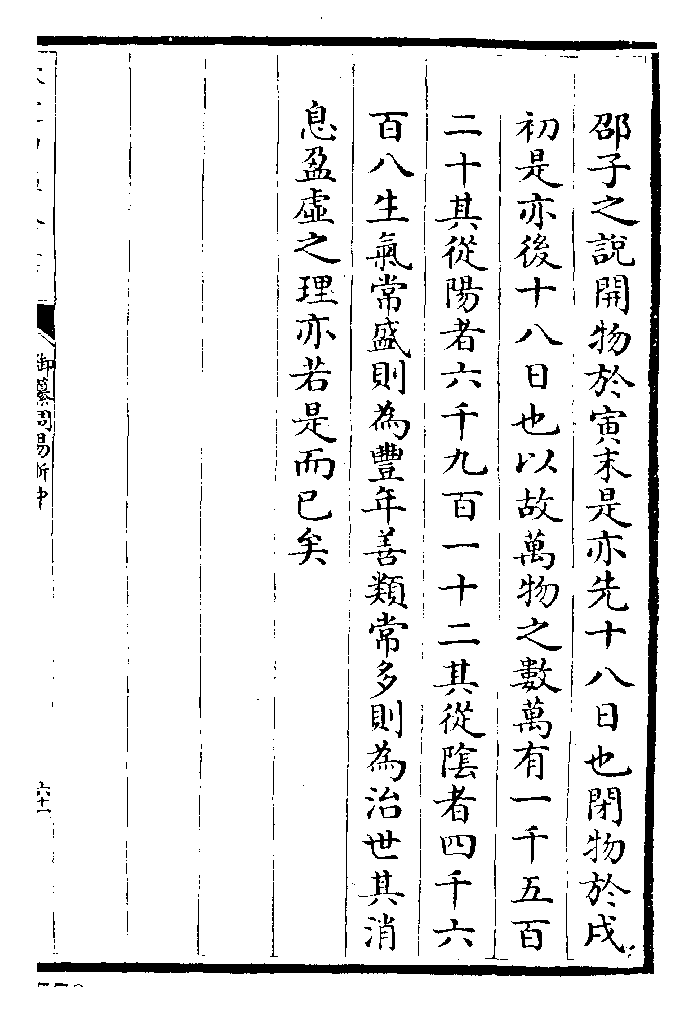 邵子之說開物於寅末是亦先十八日也閉物於戌
初是亦後十八日也以故萬物之數萬有一千五百
二十其從陽者六千九百一十二其從陰者四千六
百八生氣常盛則為豐年善類常多則為治世其消
息盈虛之理亦若是而已矣
御纂周易折中
六十一